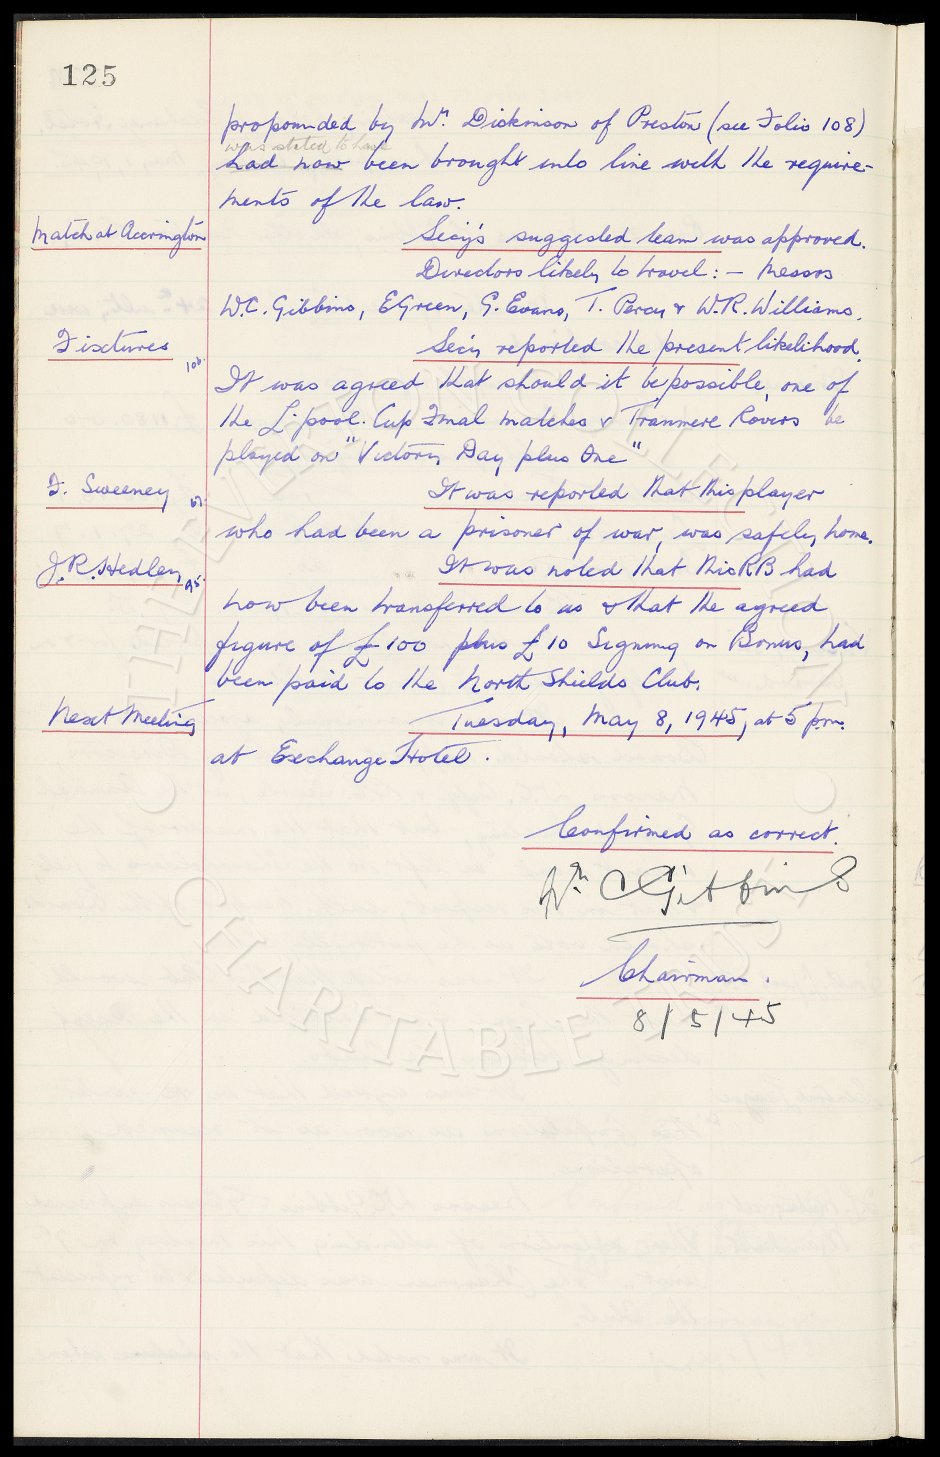 125
propounded by Mr. Dickinson of Preston (see Folio 108)
was stated to have
had now been brought into line with the require-
ments of the law.
Match at Accrington
Secy's suggested team was approved.
Directors likely to travel: – Messrs
W.C. Gibbins, E Green, G. Evans, T. Percy & W.R. Williams.
Fixtures 106.
Secy reported the present likelihood.
It was agreed that should it be possible, one of
the L'pool. Cup Final matches v Tranmere Rovers be
played on "Victory Day plus One"
F. Sweeney
It was reported that this player
who had been a prisoner of war, was safely home.
J.R. Hedley 95.
It was noted that this RB had
now been transferred to us & that the agreed
figure of £100 plus £10 Signing on Bonus, had
been paid to the North Shields Club.
Next Meeting
Tuesday, May 8, 1945, at 5 pm.
at Exchange Hotel.
Confirmed as correct.
Wm C Gibbins
Chairman.
8/5/45
THE EVERTON COLLECTION
CHARITABLE TRUST